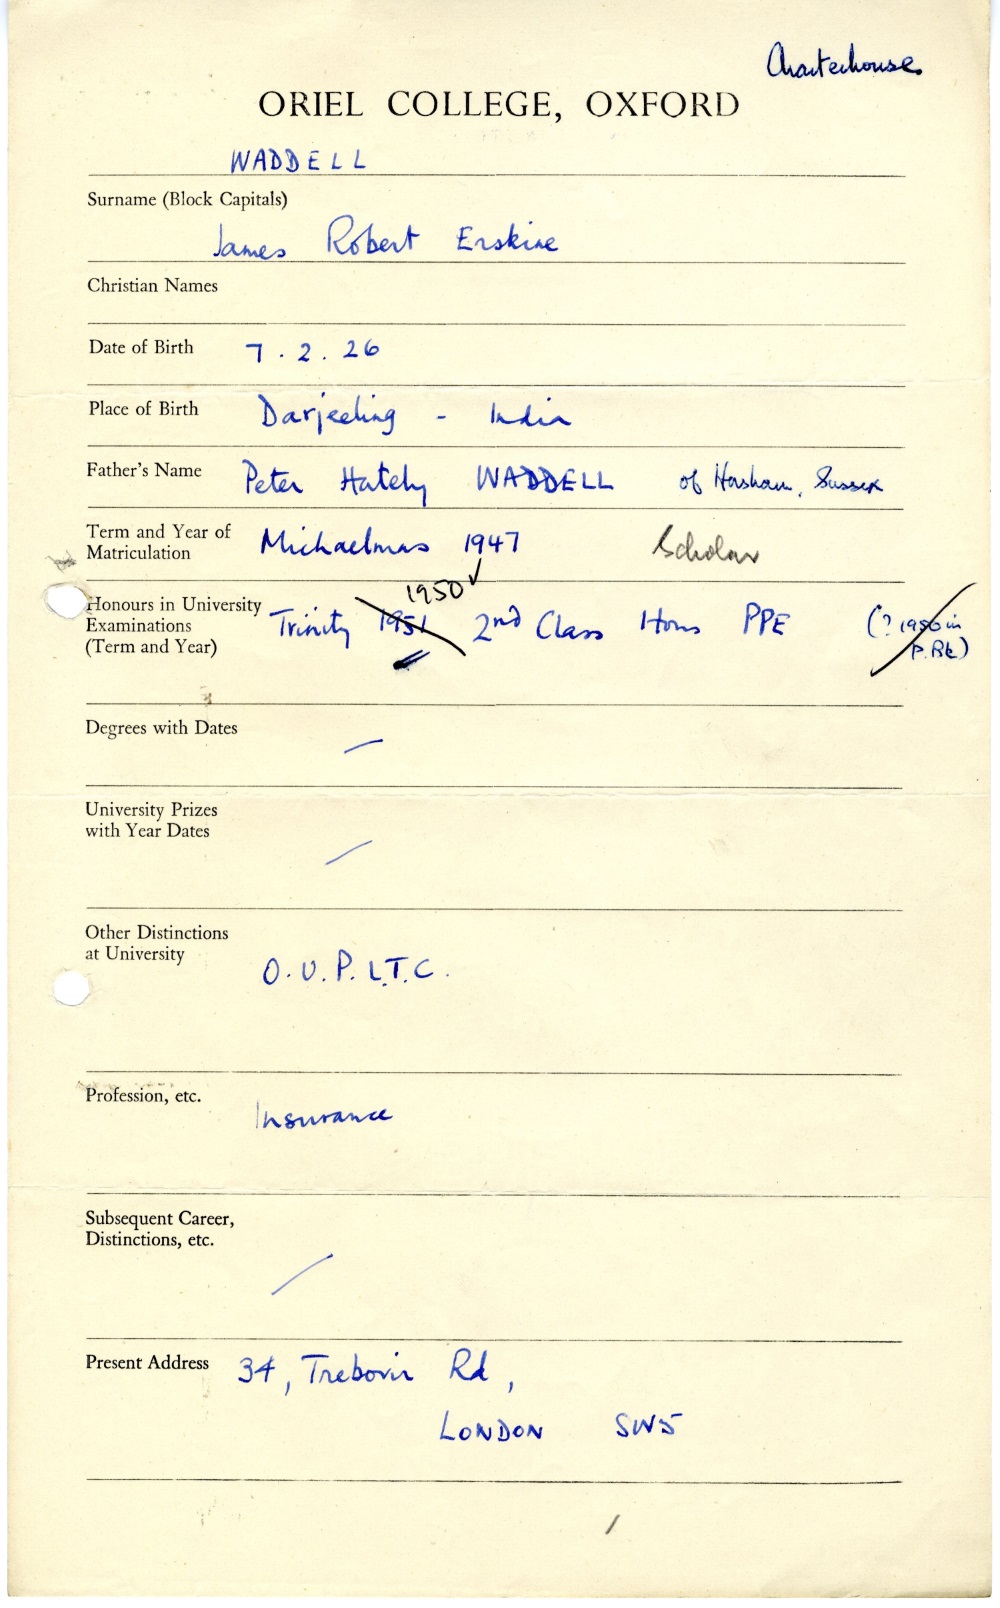 Charterhouse
ORIEL COLLEGE, OXFORD
WADDELL
Surname (Block Capitals)
James Robert Erskine
Christian Names
Date of Birth 7 . 2 . 26
Place of Birth Darjeeling - India
Father's Name Peter Hately WADDELL of Horsham, Sussex
Term and Year of Matriculation Michaelmas 1947 Scholar
1950 ✓
Honours in University Examinations (Term and Year) Trinity 1951 2nd Class Hons PPE (? 1950 in P. Bk)
Degrees with Dates —
University Prizes with Year Dates —
Other Distinctions at University O.U.P.L.T.C.
Profession, etc. Insurance
Subsequent Career, Distinctions, etc. —
Present Address 34, Trebovir Rd,
LONDON SW5
/